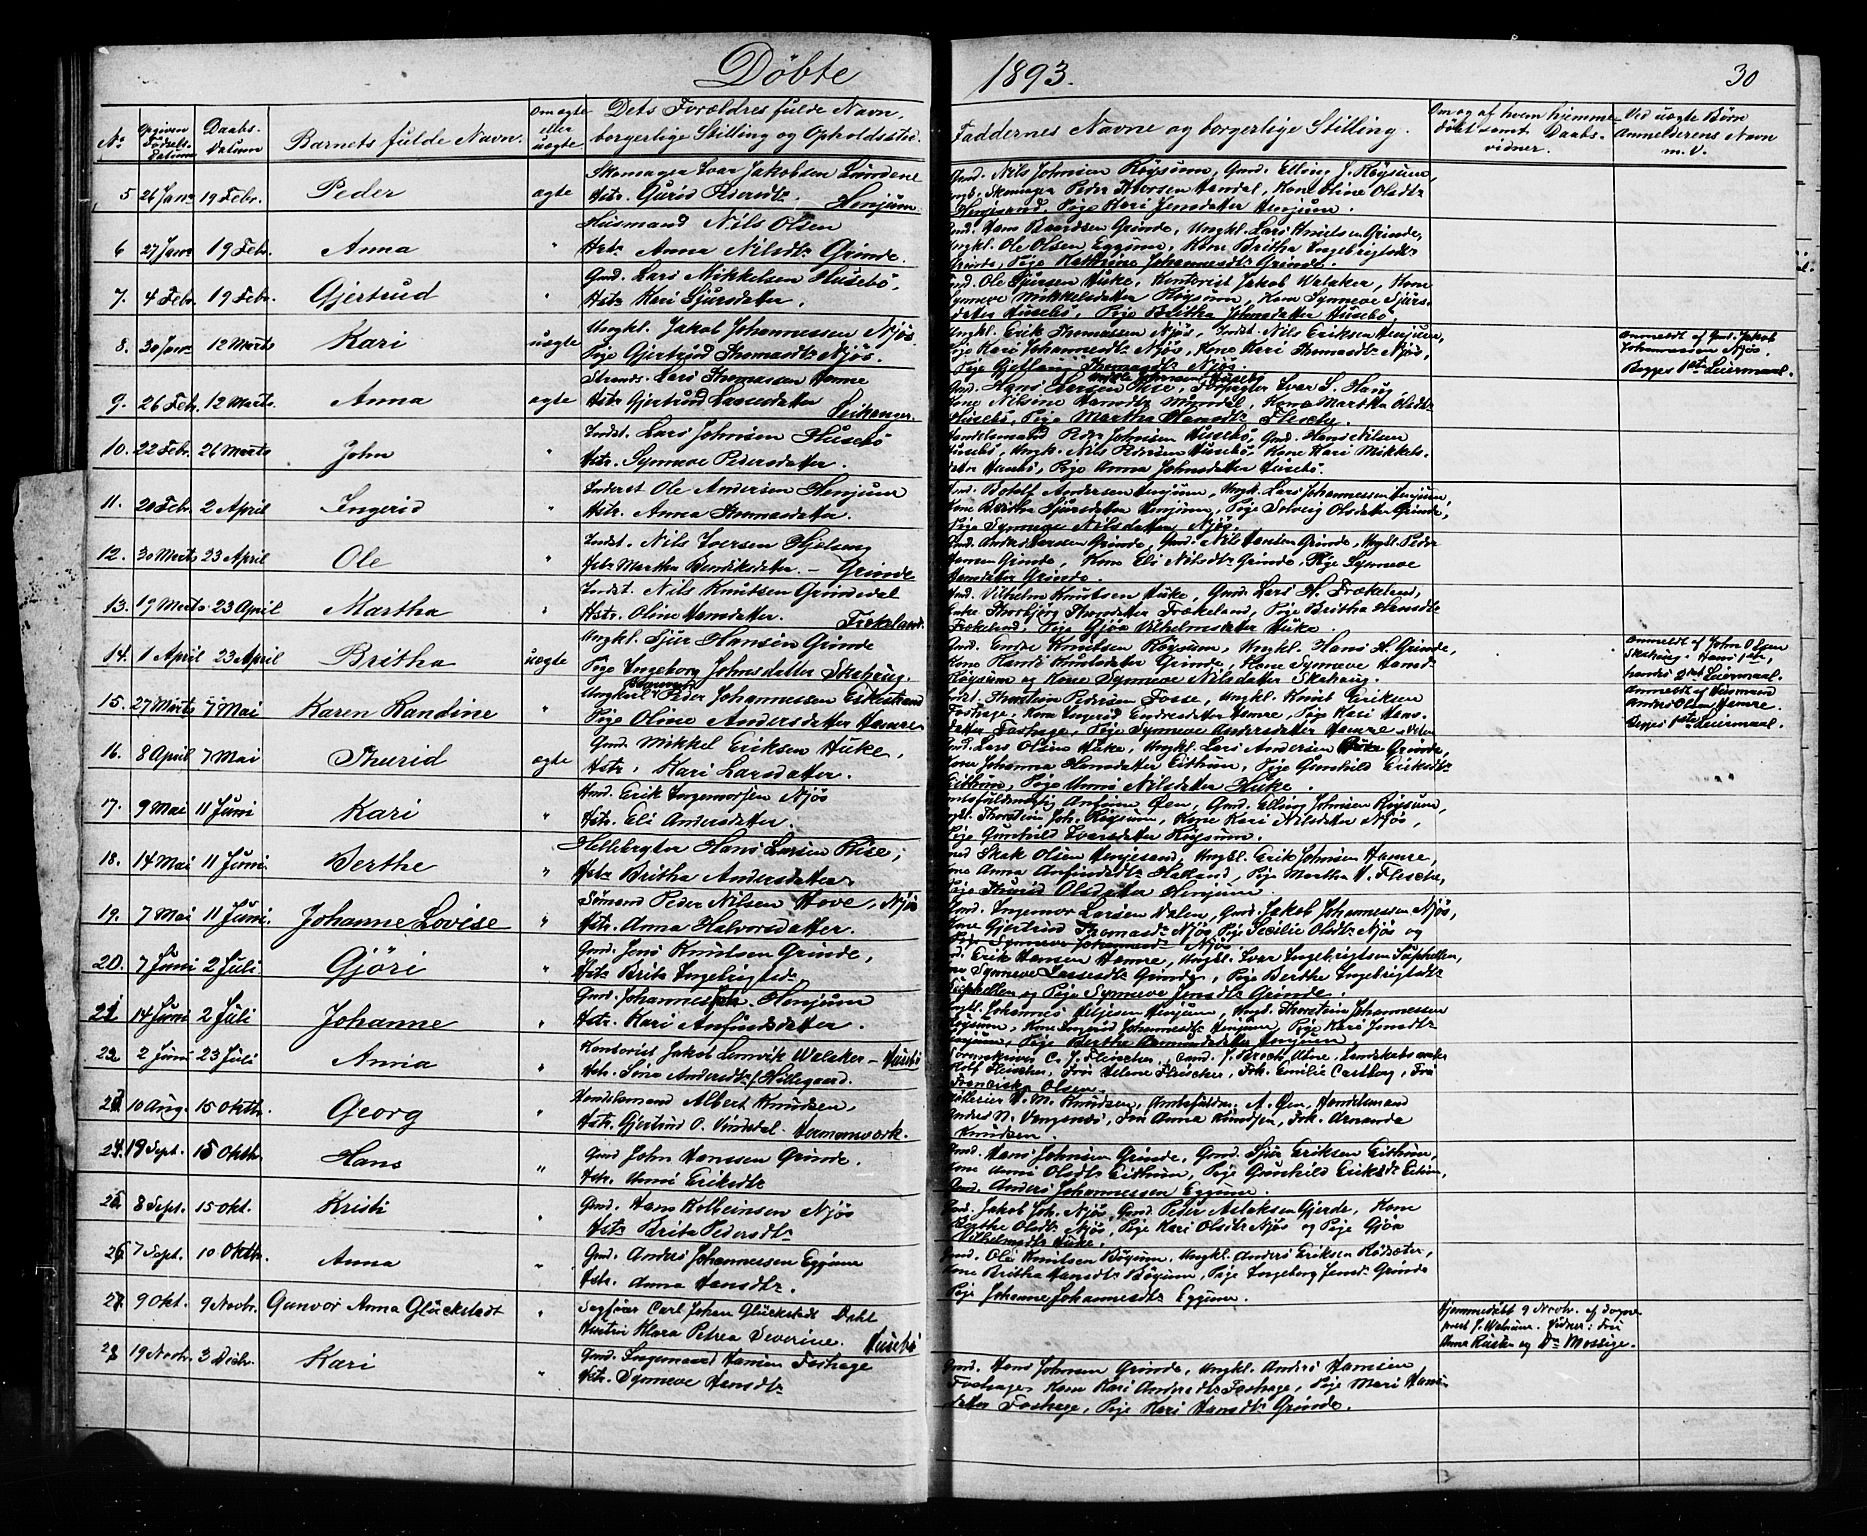 Döbte
1893.
30
No
Opgiven Fødsels-datum
Daabs-datum
Barnets fulde Navn.
Om ægte eller uægte
Dets Forældres fulde Navn, borgerlige Stilling og Opholdssted.
Faddernes Navne og borgerlige Stilling.
Om og af hvem hjemme-döbt samt Daabs-vidner.
Ved uægte Börn Anmelderens Navn m. V.
5 26 Janr 19 Febr. Peder ægte
Skomager Ivar Jakobsen Lundene
Hstr. Gurid Pedersdtr. Henjum.
Gmd. Nils Johnsen Röysum, Gmd. Elling J. Röysum,
Skomager Peder Iversen Hamdal, Kone Oline Olsdtr
Henjesand, Pige Kari Jensdatter Henjum.
6 27 Janr 19 Febr. Anna "
Husmand Nils Olsen
Hstr Anna Nilsdtr Grinde.
Gmd. Hans Baardsen Grinde, Ungkl. Lars Knutsen Grinde,
Ungkl. Ole Olsen Eggum, Kone Britha Ingebrigtsdtr
Grinde, Pige Kathrine Johannesdtr Grinde.
7. 4 Febr. 19 Febr. Gjertrud "
Gmd. Lars Mikkelsen Husebö,
Hstr Kari Sjursdatter.
Gmd. Ole Sjursen Huke, Kontorist Jakob Walaker, Kone
Synneve Mikkelsdatter Röysum, Kone Synneve Sjurs-
datter Husebö, Pige Britha Johnsdatter Husebö.
8. 30 Janr 12 Marts Kari uægte
Ungkl. Jakob Johannessen Njös
Pige Gjertrud Thomasdtr Njös.
Ungkl. Erik Thomassen Njös, Indst. Nils Eriksen Henjum,
Pige Kari Johannesdtr Njös, Kone Kari Thomasdtr Njös,
Pige Thomasdtr Njös.
Anmeldt af Gmd. Jakob
Johannessen Njös.
Begges 1ste Leiermaal.
9. 26 Febr. 12 Marts Anna ægte
Strands. Lars Thomassen Hamre
Hstr Gjertrud Lassesdatter Leikanger.
Gmd. Hans Larsen Rise, Forpagter Ivar S. Haug
Kone Nilsine Hansdtr Mundal, Kone Martha Olsdtr
Husebö, Pige Martha Hansdtr
10. 22 Febr. 26 Marts John "
Indst. Lars Johnsen Husebö
Hstr. Synneve Pedersdatter.
Handelsmand Johnsen Husebö, Gmd. Hans Nilsen
Husebö, Ungk. Nils Pedersen Husebö, Kone Kari Mikkels-
datter Husebö, Pige Anna Johnsdatter Husebö.
11. 20 Febr. 2 April Ingerid "
Inderst Ole Andersen Henjum
Hstr. Anna Thomasdatter.
Gmd. Botolf Andersen Henjum, Ungk. Lars Johannessen Henjum,
Kone Britha Sjursdatter Henjum, Pige Solveig Olsdatter Grinde,
Pige Synneve Nilsdatter Njös.
12. 30 Marts 23 April Ole "
Indst. Nils Iversen Hjelseng
Hstr Martha Bendiksdatter. - Grinde
Gmd. Anders Iversen Grinde, Gmd. Nils Hansen Grinde, Ungkl. Peder
Hansen Grinde, Kone Eli Nilsdtr Grinde, Pige Synneve
Hansdatter Grinde.
13. 19 Marts 23 April Martha "
Indst. Nils Knutsen Grindedal
Hstr. Oline Hansdatter. Frækeland.
Gmd. Vilhelm Knutsen Huke, Gmd. Lars H. Frækeland,
Enke Thorbjörg Thomdatter Frækeland, Pige Britha Hansdtr
Frækeland, Pige Gjöa Vilhelmsdatter Huke.
14. 1 April 23 April Britha uægte
Ungkl. Sjur Hansen Grinde
Pige Ingeborg Johnsdatter Skahaug.
Gmd. Endre Knutsen Röysum, Ungkl. Hans H. Grinde,
Kone Randi Knutsdatter Grinde, Kone Synneve Hansd.
Röysum og Kone Synneve Nilsdatter Skahaug.
Anmeldt af John Olsen
Skahaug. Hans 1ste,
hendes 2det Leiermaal.
15. 27 Marts 7 Mai Karen Randine "
Ungkarl Peder Johannesen Eikestrand
Pige Oline Andersdatter Hamre.
Indst. Thorstein Pedersen Fosse, Ungkl. Knut Eriksen
Foshage, Kone Ingerid Endresdatter Hamre, Pige Kari Hans-
datter Foshage, Pige Synneve Andersdatter Hamre
Anmeldt af Husmand
Anders Olsen Hamre.
Begges 1ste Leiermaal.
16. 8 April 7 Mai Thurid ægte
Gmd. Mikkel Eriksen Huke,
Hstr. Kari Larsdatter.
Gmd. Lars Olsen Huke, Ungkl. Lars Andersen Grinde,
Kone Johanna Hansdatter Eithun, Pige Gunhild Eriksdtr
Eithun, Pige Unni Nilsdatter Huke.
17. 9 Mai 11 Juni Kari "
Gmd. Erik Ingemorsen Njös
Hstr. Eli Andersdatter.
Amtsfuldmægtig Anfinn Øen, Gmd. Elling Johnsen Röysum,
Ungkl. Thorstein Joh. Röysum, Kone Kari Nilsdatter Njös,
Pige Gunhild Ivarsdatter Röysum.
18. 14 Mai 11 Juni. Berthe "
Hans Larsen Rise,
Hstr Britha Andersdatter.
Gmd Skak Olsen Henjesand, Ungkl. Erik Johnsen Hamre,
Kone Anna Anfindsdtr Hælland, Pige Martha
Pige Thurid Olsdatter Henjum.
19. 7 Mai 11 Juni. Johanne Lovise "
Sömand Peder Nilsen Hove, Njös
Hstr. Anna Halvorsdatter.
Gmd. Ingemor Larsen Nalen, Gmd. Jakob Johannessen Njös,
Kone Gjertrud Thomasdtr Njös, Pige Secilie Olsdtr Njös og
Pige Synneve Johannesdtr Njös
20. 7 Juni 2 Juli Gjöri "
Gmd. Jens Knutsen Grinde,
Hstr Brita Ingebrigtsd.
Gmd. Erik Hansen Hamre, Ungkl. Ivar Ingebrigtsen Suphellen,
Kone Synneve Lassesdtr Grinde, Pige Berthe Ingebrigtsdtr
Suphellen og Pige Synneve Jensdtr Grinde.
21 14 Juni 2 Juli Johanne "
Gmd. Johannes Joh. Henjum
Hstr. Kari Anfindsdatter.
Ungkl. Johannes Henjum, Ungkl. Thorstein Johannessen
Röysum, Kone Ingerid Johannesdtr Henjum, Pige Kari Jensdtr
Henjum, Pige Berthe Henjum.
22 2 Juni 23 Juli Anna "
Kontorist Jakob Lomvik Walaker - Husebö
Hstr. Sina Andersdtr f. Hillegaard.
Sorenskriver C. J. Fleischer, cand. J. Brock Utne, Landskabsmaler
Rolf Fleischer, Fru Helene Fleischer, Frk. Emilie Castberg, Fru
Franciska Olsen.
23 10 Aug. 15 Oktbr. Georg "
Handelsmand Albert Knudsen,
Hstr. Gjertrud O. Vindedal. Hermansverk.
M. Knudsen, Amtsfuldm. A. Øen, Handelsmand
Anders N. Vangsnes, Fru Anna Knudsen, Frk. Amanda
Knudsen.
24 19 Sept. 15 Oktbr. Hans "
Gmd John Hanssen Grinde.
Hstr. Unni Eriksdtr
Gmd. Hans Johnsen Grinde, Gmd. Sjur Eriksen Eithun,
Kone Unni Olsdtr Eithun, Pige Gunhild Eriksdtr Eithun,
Gmd. Anders Johannessen Eggum.
25 8 Sept. 15 Okt. Kristi "
Gmd. Hans Kolbeinsen Njös
Hstr Brita Pedersdtr
Gmd. Jakob Joh. Njös, Gmd. Peder Aslaksen Gjerde, Kone
Berthe Olsdtr Njös, Pige Kari Olsdtr Njös og Pige Gjöa
Vilhelmsdtr Huke.
26 7 Sept. 10 Oktbr. Anna "
Gmd. Anders Johannessen Eggum
Hstr. Anna Hansdtr
Gmd. Ole Knutsen Böyum, Ungkl. Anders Eriksen Rödsæter,
Kone Britha Hansdtr Böyum, Pige Ingeborg Jensdr Grinde
Pige Johanne Johannesdtr Eggum.
27. 9 Okt. 9 Novbr. Gunvor Anna Glückstadt "
Sagförer Carl Johan Glückstadt Dahl
Hustru Klara Petrea Severine. Husebö
Hjemmedöbt 9 Novbr. af Sogne-
prest J. Walnum. Vidner: Fru
Anna Kaske og Dr Mossige.
28 19 Novbr. 3 Decbr. Kari "
Gmd. Ingemund Hansen Foshage
Hstr. Synneve Hansdtr
Gmd. Hans Johnsen Grinde, Ungkl. Anders Hansen
Foshage, Kone Kari Andersdtr Foshage, Pige Mari Hans-
datter Foshage, Pige Kari Hansdtr Grinde.